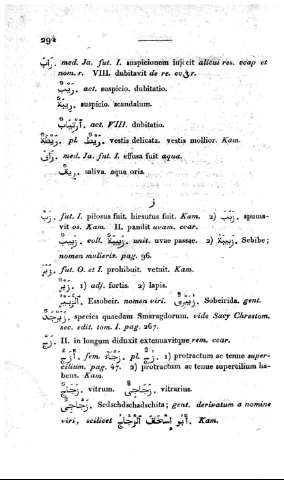 294
رَابَ med. Ja. fut. I. suspicionem injicit alicui res. ccap et
nom. r. VIII. dubitavit de re. c. في r.
رَيْبٌ act. suspicio. dubitatio.
رِيبَةٌ suspicio. scandalum.
اِرْتِيَابٌ act. VIII. dubitatio.
رَيْطَةٌ pl. رَيْطٌ vestis delicata. vestis mollior. Kam.
رَاقَ med. Ja. fut. I. effusa fuit aqua.
رِيقٌ saliva. aqua oris.
ز
زَبَّ fut. I. pilosus fuit. hirsutus fuit. Kam. 2) زَبَّبَ spuma-
vit os. Kam. II. passlit uvam. ccar.
زَبِيبٌ coll. زَبِيبَةٌ unit. uvae passae. 2) زَبِيبَةُ Sebibe;
nomen mulieris. pag. 96.
زَبَرَ fut. O. et I. prohibuit. vetuit. Kam.
زَبْرٌ 1) adj. fortis. 2) lapis.
اَلزُّبَيْرُ Essobeir. nomen viri. زُبَيْرِىٌّ Sobeirida. gent.
زَبَرْجَدٌ species quaedam Smaragdorum. vide Sacy Chrestom.
sec. edit. tom. I. pag. 267.
زَجَّ II. in longum diduxit extenuavitque rem. ccar.
أَزَجُّ fem. زَجَّاءُ pl. زُجٌّ 1) protractum ac tenue super-
cilium. pag. 47. 2) protractum ac tenue supercilium ha-
bens. Kam.
زُجَاجٌ vitrum. زُجَاجِىٌّ vitrarius.
زَجَّاجِىٌّ Sedschdschadschita; gent. derivatum a nomine
viri, scilicet أَبُو إِسْحَقَ ٱلزَّجَّاجُ Kam.